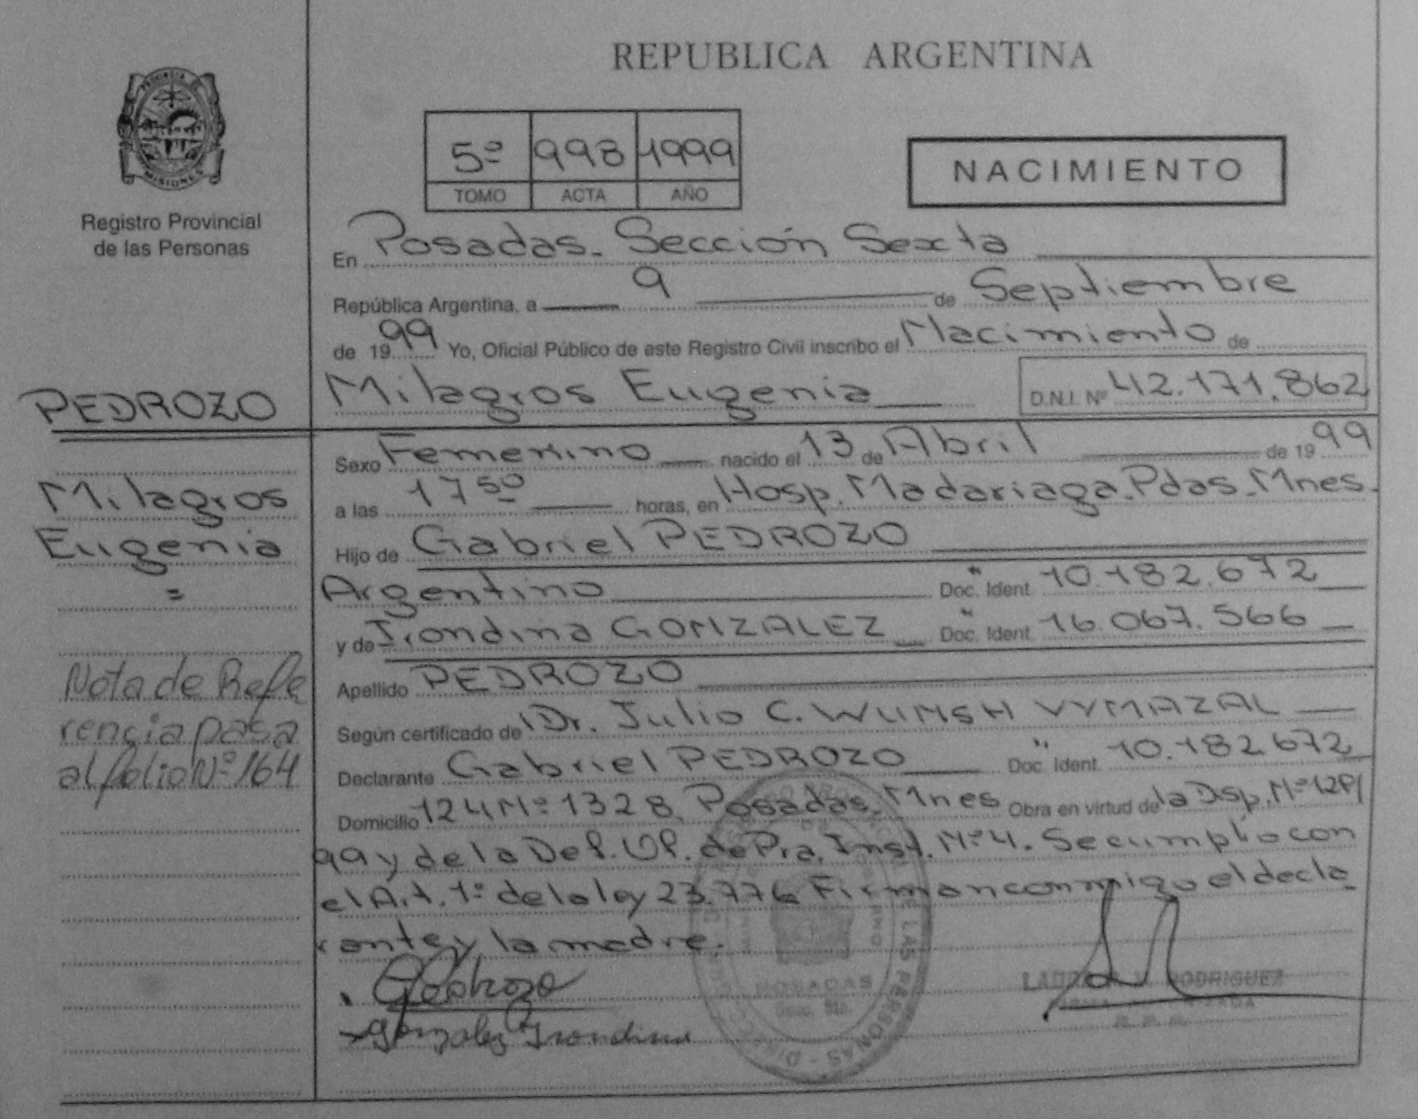 REPUBLICA ARGENTINA
MISIONES
Registro Provincial
de las Personas
5º 998 1999
TOMO ACTA AÑO
NACIMIENTO
En Posadas. Sección Sexta
República Argentina, a 9 de Septiembre
de 1999 Yo, Oficial Público de este Registro Civil inscribo el Nacimiento de
PEDROZO Milagros Eugenia D.N.I. Nº 42.171.862
Sexo Femenino nacido el 13 de Abril de 1999
a las 17 50 horas, en Hosp. Madariaga. Pdas. Mnes.
Hijo de Gabriel PEDROZO
Argentino Doc. Ident. " 10.182.672
y de Irondina GONZALEZ Doc. Ident. " 16.067.566
Apellido PEDROZO
Según certificado de Dr. Julio C. WUNSH VYMAZAL
Declarante Gabriel PEDROZO Doc. Ident. " 10.182.672
Domicilio 124 Nº 1328, Posadas, Mnes Obra en virtud de la Disp. Nº 129/
99 y de la Def. Of. de Pra. Inst. Nº 4. Se cumplio con
el Art. 1º de la ley 23.776 Firman conmigo el decla
rante y la madre.
Milagros
Eugenia
=
Nota de Refe
rencia pasa
al folio Nº 164
GPedrozo
Gonzalez Irondina
POSADAS
RODRIGUEZ